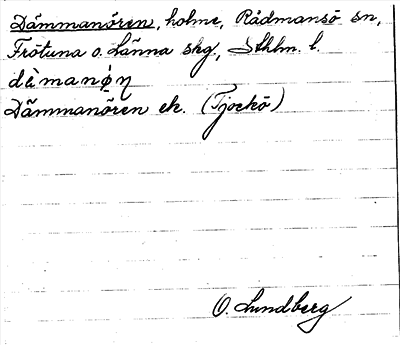 Dämmanören, holme, Rådmansö sn,
Frötuna o. Länna skg, Sthlm. l.
dàmanø̣ṇ
Dämmanören ek. (Tjockö)
O. Lundberg